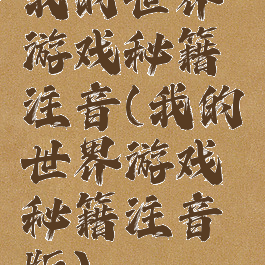 我的世界
游戏秘籍
注音(我的
世界游戏
秘籍注音
版)